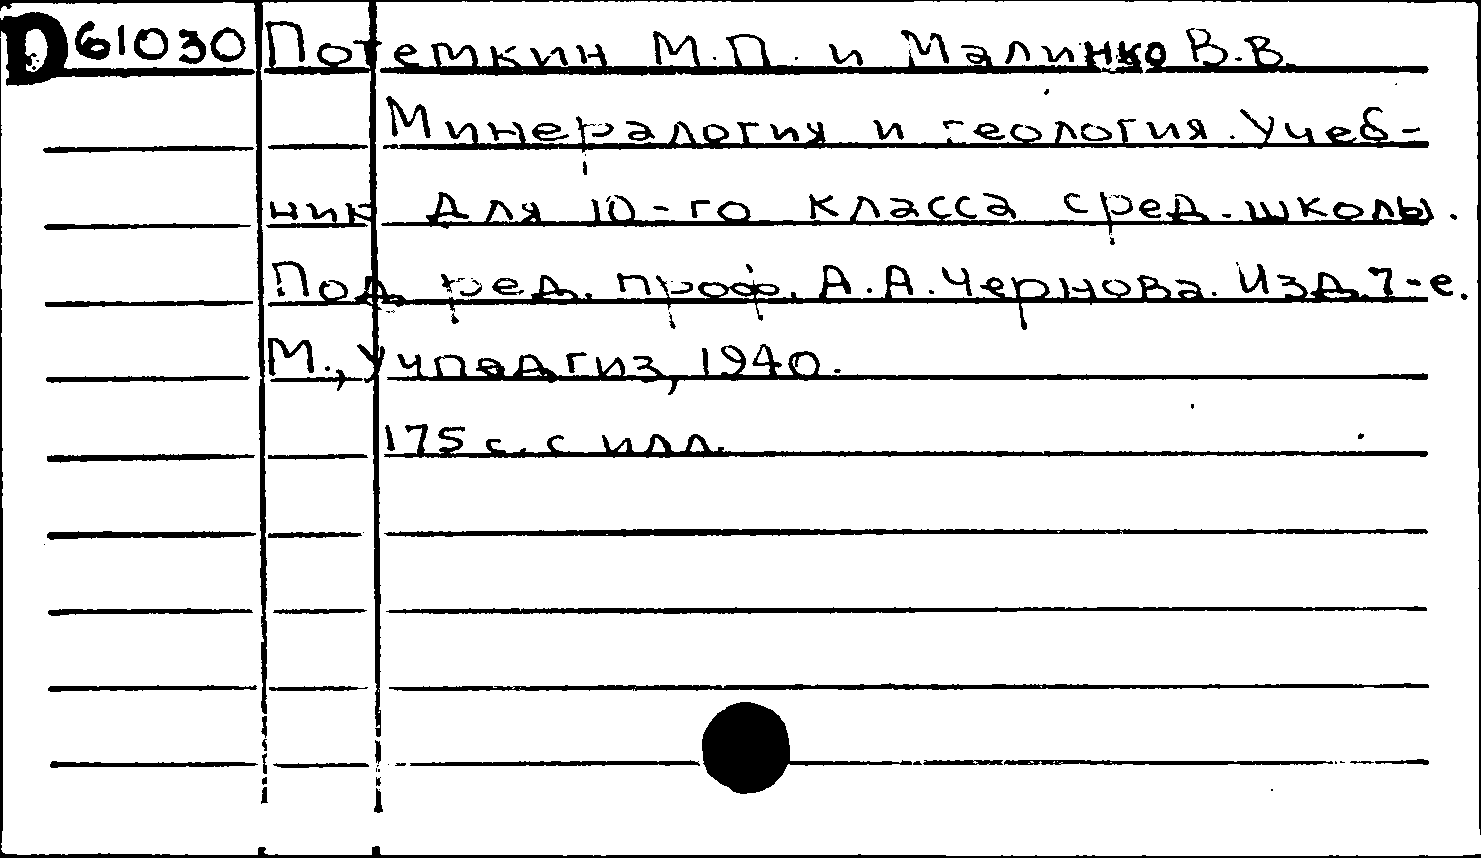 D61030 Потемкин М.П. и Малинко В.В.
Минералогия и геология. Учеб-
ник для 10-го класса сред. школы.
Под ред. проф. А.А. Чернова. Изд. 7-е.
М., Учпедгиз, 1940.
175 с. с илл.